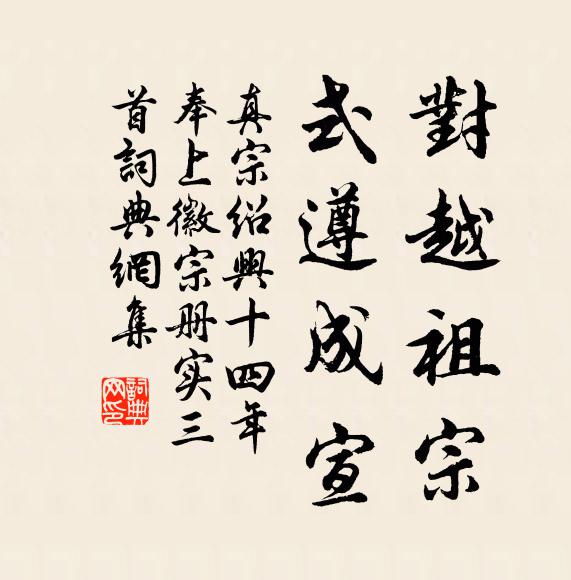 對越祖宗
式遵成宣
真宗绍興十四年
奉上徽宗册实三
首詞典網集
詞典网印